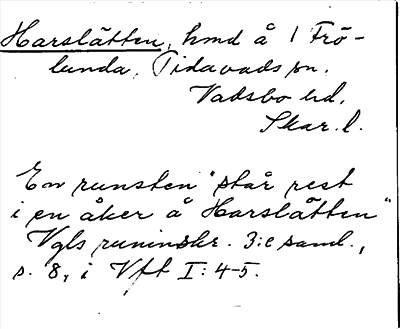 Harslätten, hmd å 1 Frö-
lunda, Tidavads sn.
Vadsbo hd.
Skar. l.
En runsten "står rest
i en åker å Harslätten"
Vgls runinskr. 3:e saml.,
s. 8, i Vft I: 4-5.